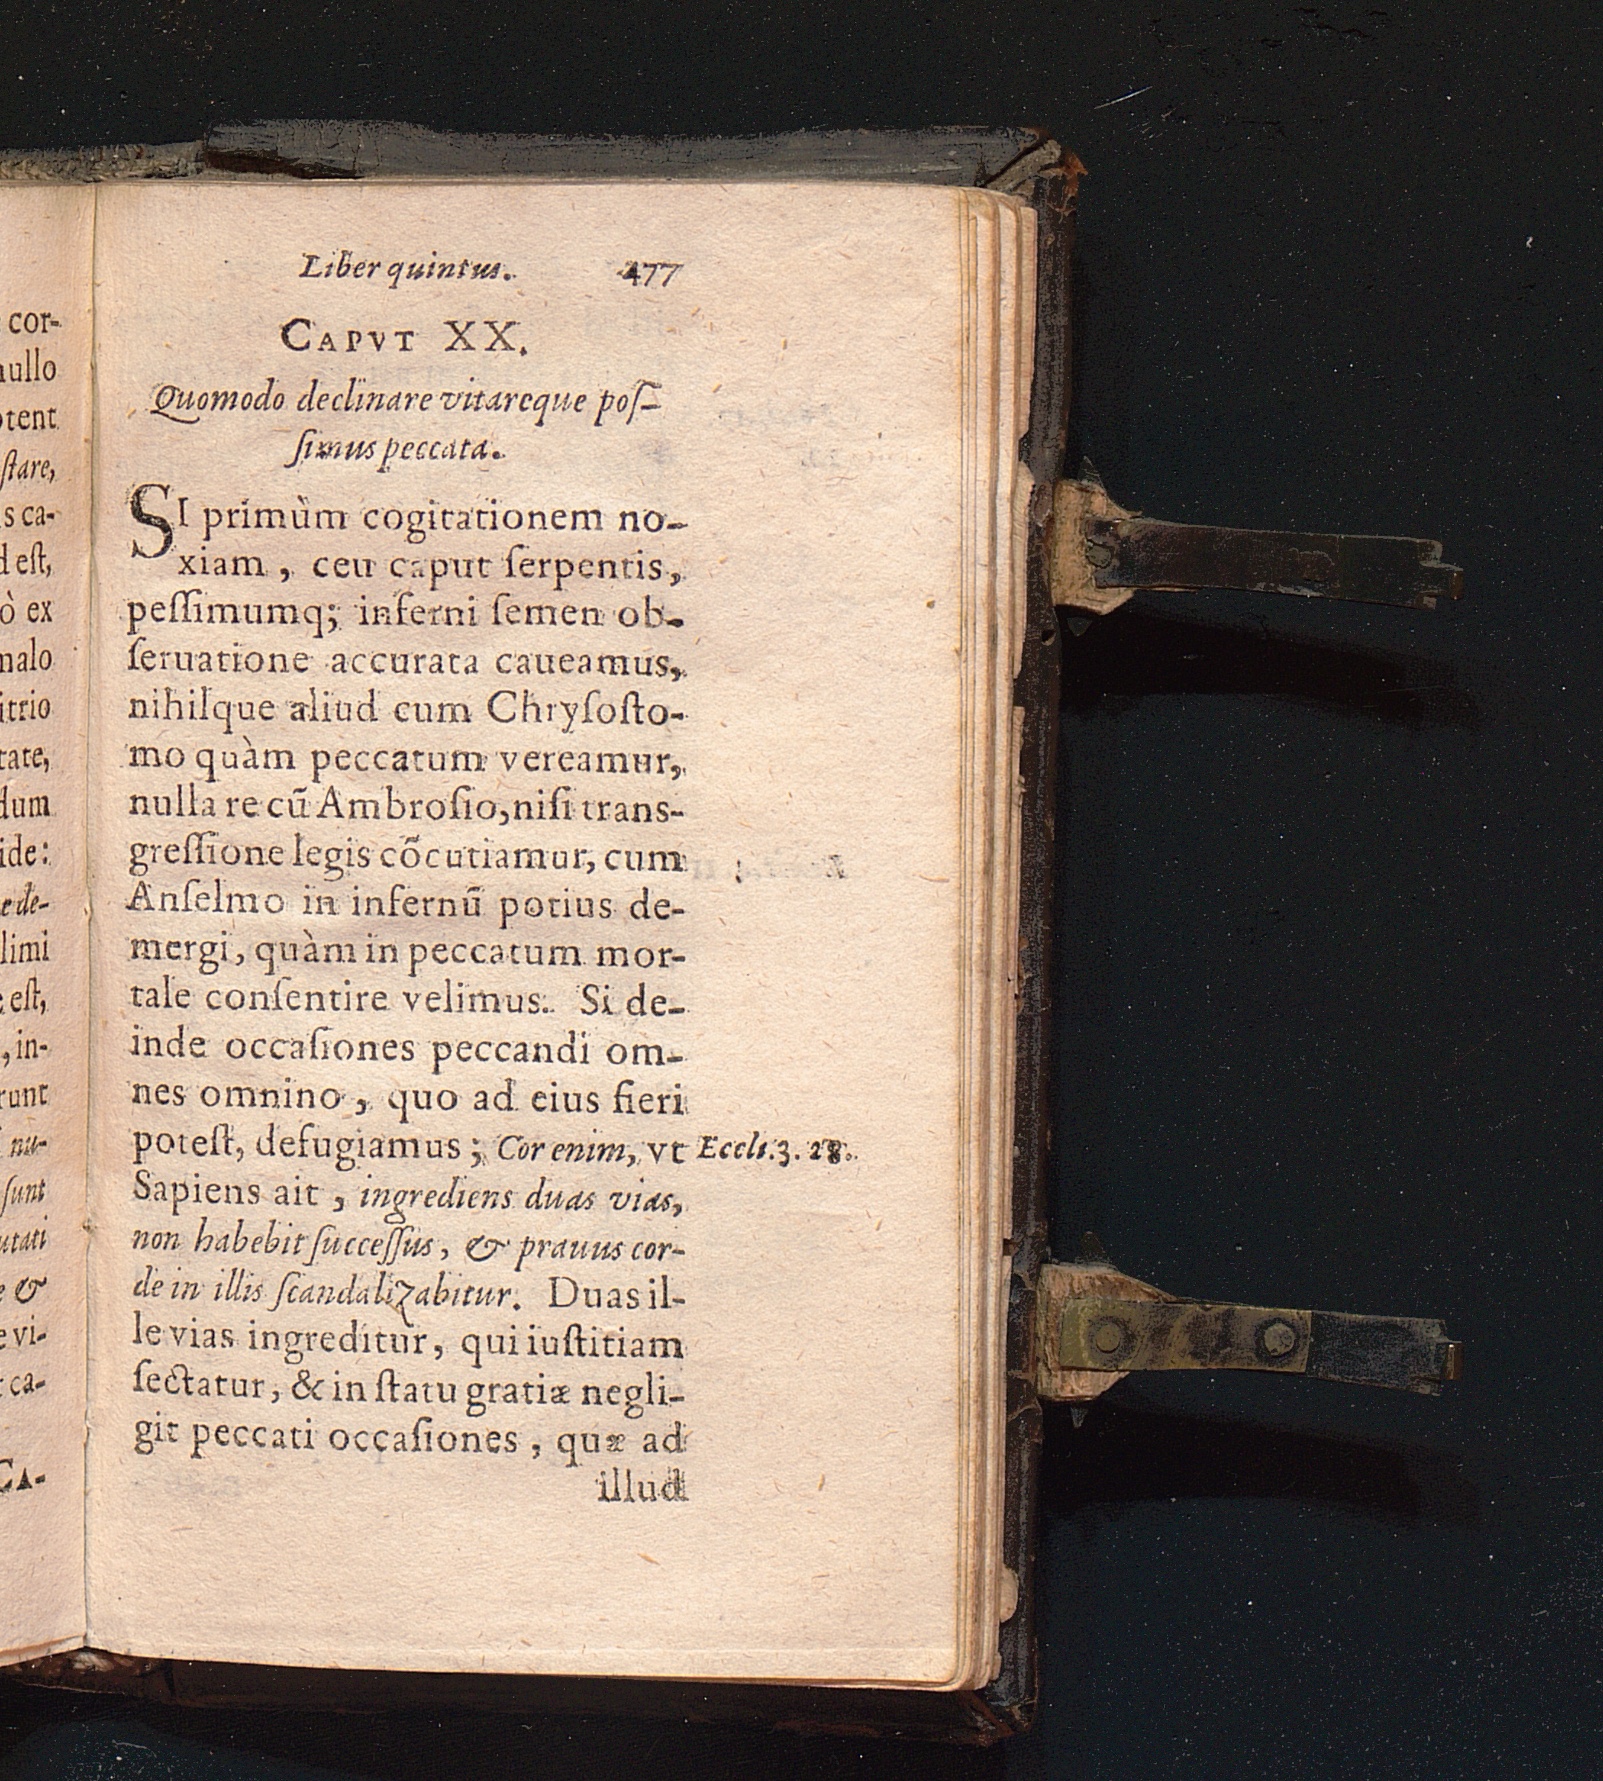 cor-
nullo
otent
stare,
s ca-
d eſt,
ò ex
malo
itrio
tate,
dum
ide:
e de-
limi
e eſt,
, in-
runt
nu-
ſunt
utati
e &
e vi-
t ca-
CA-
Liber quintus. 477
CAPVT XX.
Quomodo declinare vitareque poſ-
ſimus peccata.
SI primùm cogitationem no-
xiam, ceu caput ſerpentis,
peſſimumq; inferni ſemen ob-
ſeruatione accurata caueamus,
nihilque aliud cum Chryſoſto-
mo quàm peccatum vereamur,
nulla re cū Ambroſio, niſi trans-
greſſione legis cõcutiamur, cum
Anſelmo in infernū potius de-
mergi, quàm in peccatum mor-
tale conſentire velimus. Si de-
inde occaſiones peccandi om-
nes omnino, quo ad eius fieri
poteſt, defugiamus; Cor enim, vt Eccli. 3. 28.
Sapiens ait, ingrediens duas vias,
non habebit ſucceſſus, & prauus cor-
de in illis ſcandalizabitur. Duas il-
le vias ingreditur, qui iuſtitiam
ſectatur, & in ſtatu gratiæ negli-
git peccati occaſiones, quæ ad
illud